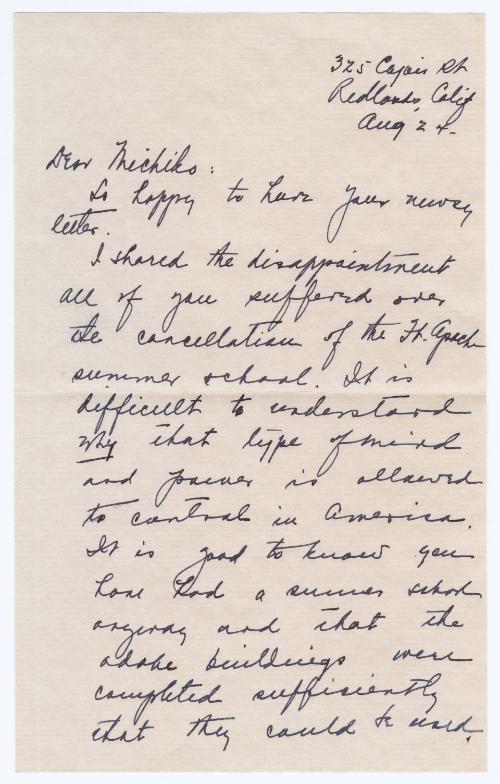 325 Cajon St
Redlands, Calif
Aug 24.
Dear Michiko:
So happy to have your newsy
letter.
I shared the disappointment
all of you suffered over
the cancellation of the Ft. Apache
summer school. It is
difficult to understand
why that type of mind
and power is allowed
to control in America.
It is good to know you
have had a summer school
anyway and that the
adobe buildings were
completed sufficiently
that they could be used.